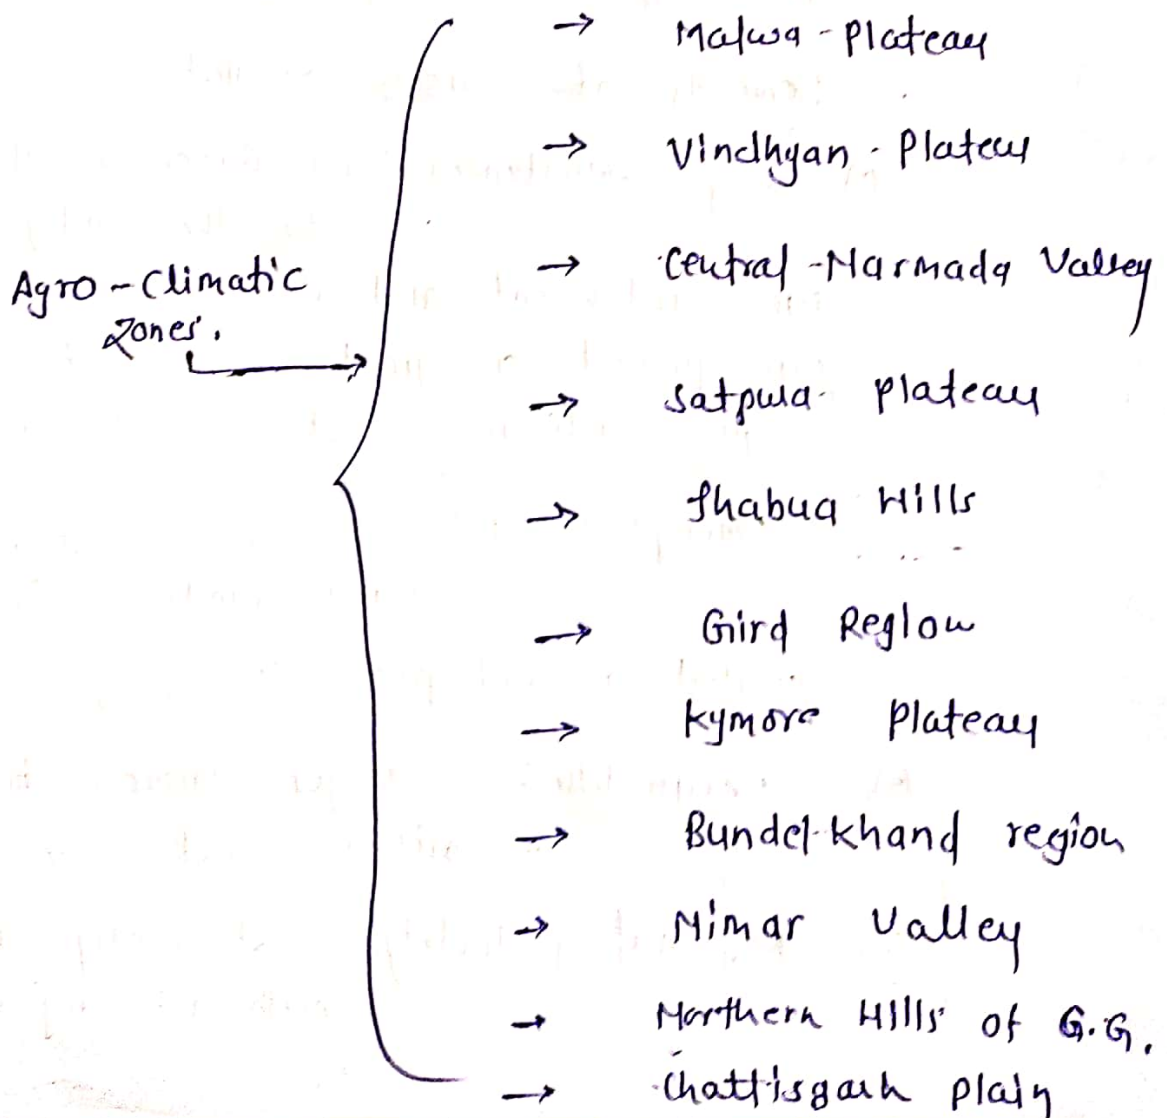 → Malwa - Plateau
→ Vindhyan - Plateau
→ Central - Narmada Valley
Agro - Climatic
Zones.
→ Satpura Plateau
→ Jhabua Hills
→ Gird Region
→ Kymore Plateau
→ Bundel-khand region
→ Nimar Valley
→ Northern Hills of G.G.
→ Chattisgarh Plain